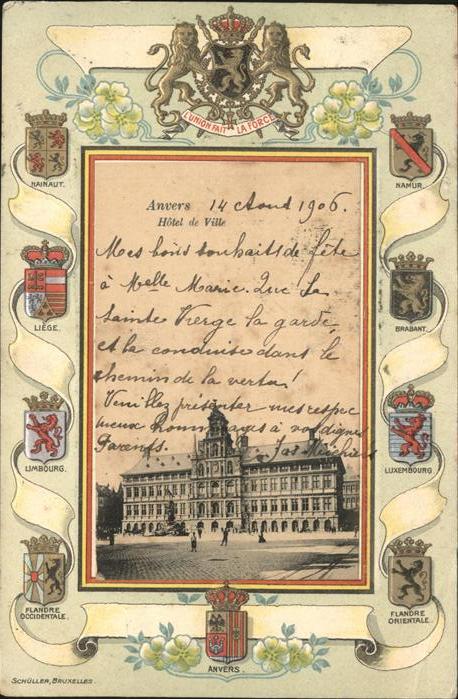 L'UNION FAIT LA FORCE
HAINAUT.
NAMUR.
Anvers 14 Aout 1906.
Hôtel de Ville
Mes bons souhaits de fête
à Melle Marie. Que la
Sainte Vierge la garde,
et la conduise dans le
chemin de la vertu!
Veuillez présenter mes respec
tueux hommages à vos dignes
Parents.
LIÉGE.
BRABANT.
LIMBOURG.
LUXEMBOURG
FLANDRE
OCCIDENTALE.
FLANDRE
ORIENTALE.
ANVERS.
SCHÜLLER, BRUXELLES.